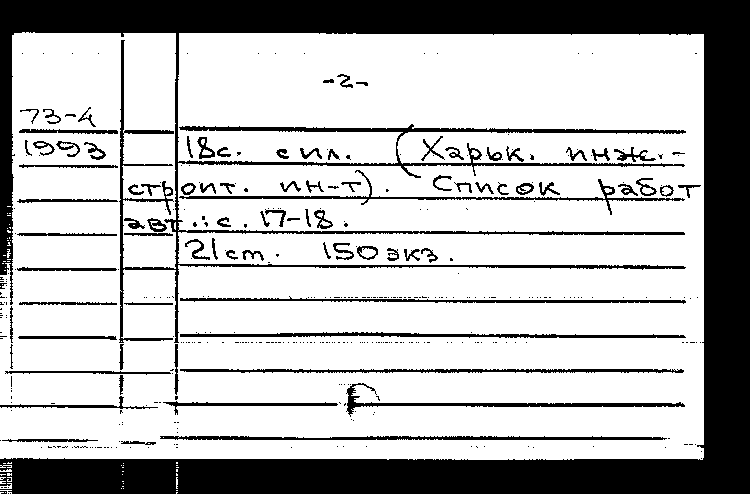 -2-
73-4
1993 18с. с ил. (Харьк. инж.-
строит. ин-т). Список работ
авт.: с. 17-18.
21 см. 150 экз.